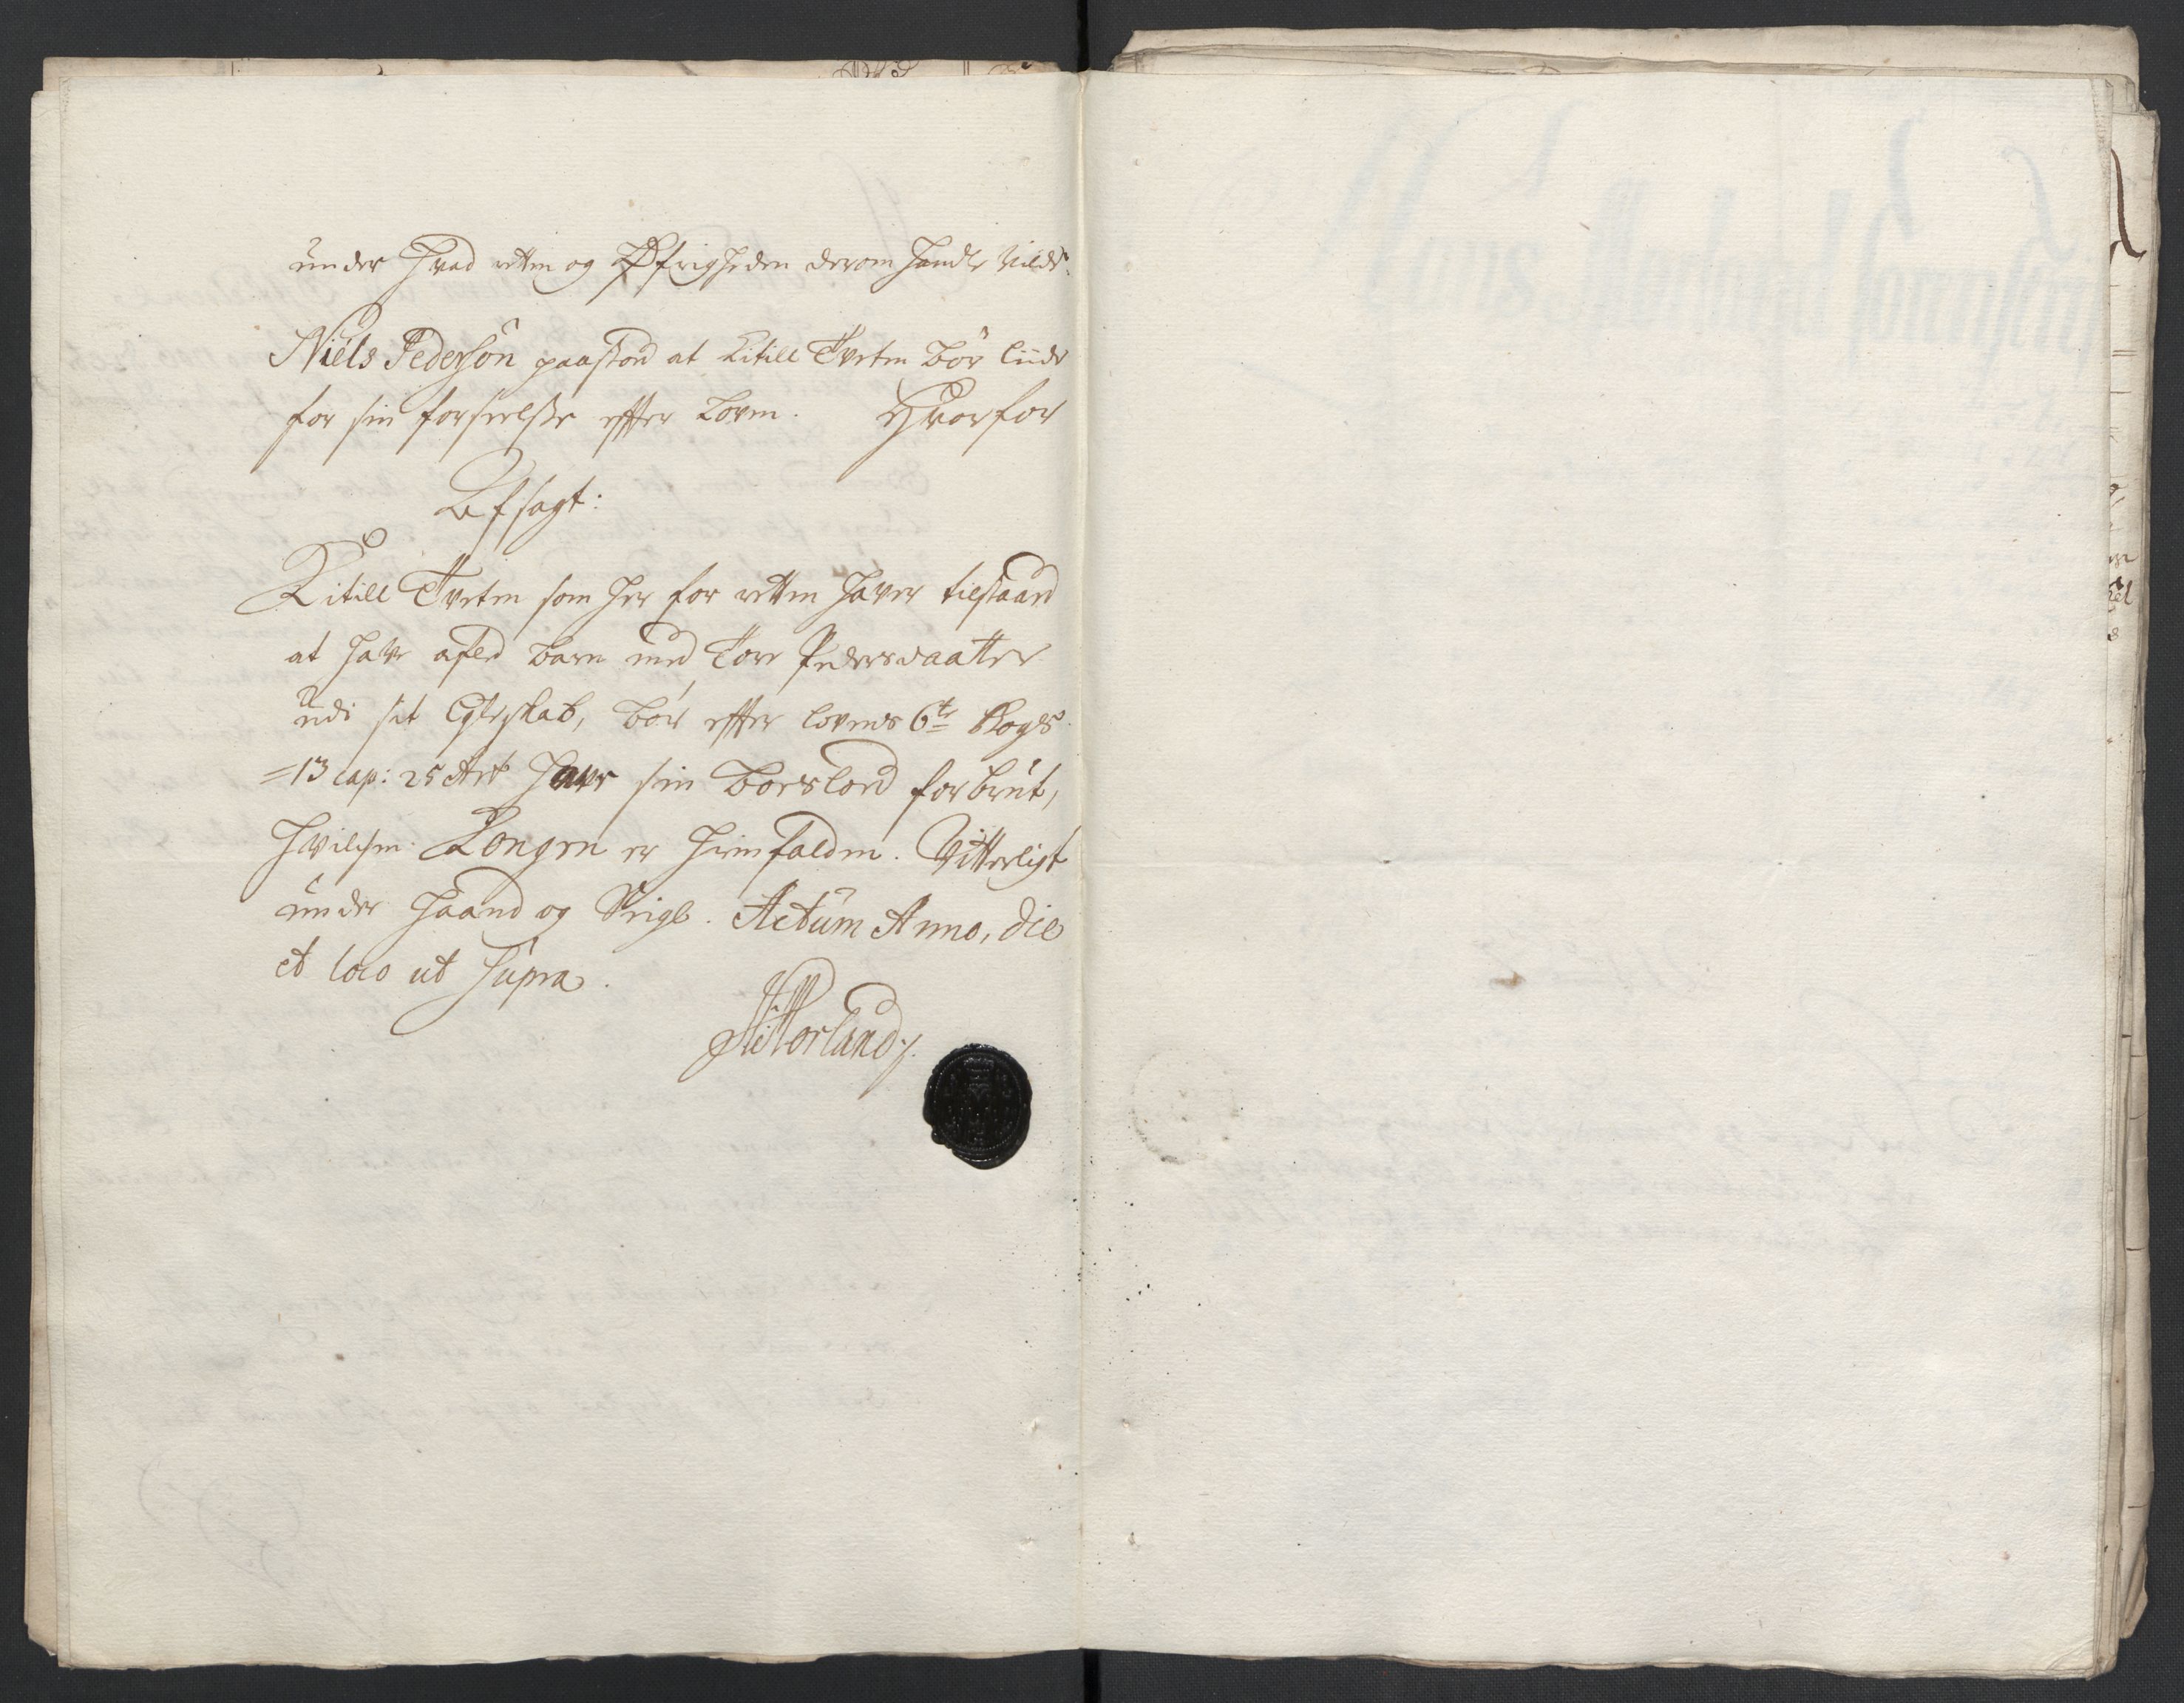 under hvad retten og Øfrigheden derom handle vilde.
Niels Pedersön paastod at Kitill Tveten bör liide
for sin forseelsse effter Loven. Hvorfor
Afsagt:
Kitill Tveten som her for retten haver tilstaaed
at have afled barn med Tore Pedersdaatter
udi sit Egteskab, bör effter lovens 6te Bogs
=13 Cap: 25 Art have sin Boeslod forbrut,
hvilchen Kongen er hiemfalden. Vitterligt
under Haand og Seigl. Actum Anno, die
et loco ut supra.